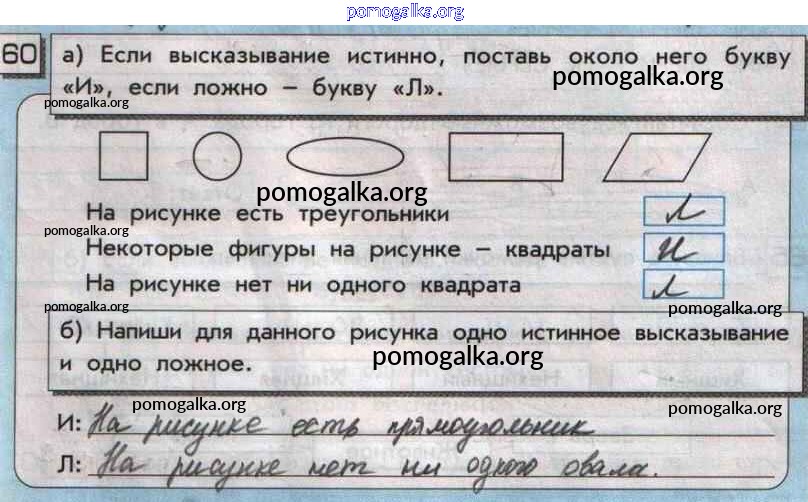 pomogalka.org
60 а) Если высказывание истинно, поставь около него букву
«И», если ложно – букву «Л».
pomogalka.org
pomogalka.org
pomogalka.org
На рисунке есть треугольники Л
pomogalka.org
Некоторые фигуры на рисунке – квадраты И
На рисунке нет ни одного квадрата Л
pomogalka.org
pomogalka.org
б) Напиши для данного рисунка одно истинное высказывание
и одно ложное.
pomogalka.org
pomogalka.org
pomogalka.org
И: На рисунке есть прямоугольник
Л: На рисунке нет ни одного овала.